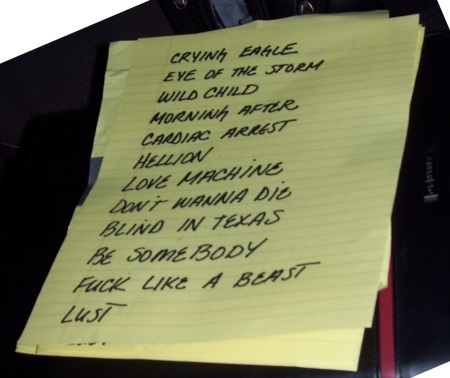 CRYING EAGLE
EYE OF THE STORM
WILD CHILD
MORNING AFTER
CARDIAC ARREST
HELLION
LOVE MACHINE
DON'T WANNA DIE
BLIND IN TEXAS
BE SOMEBODY
FUCK LIKE A BEAST
LUST